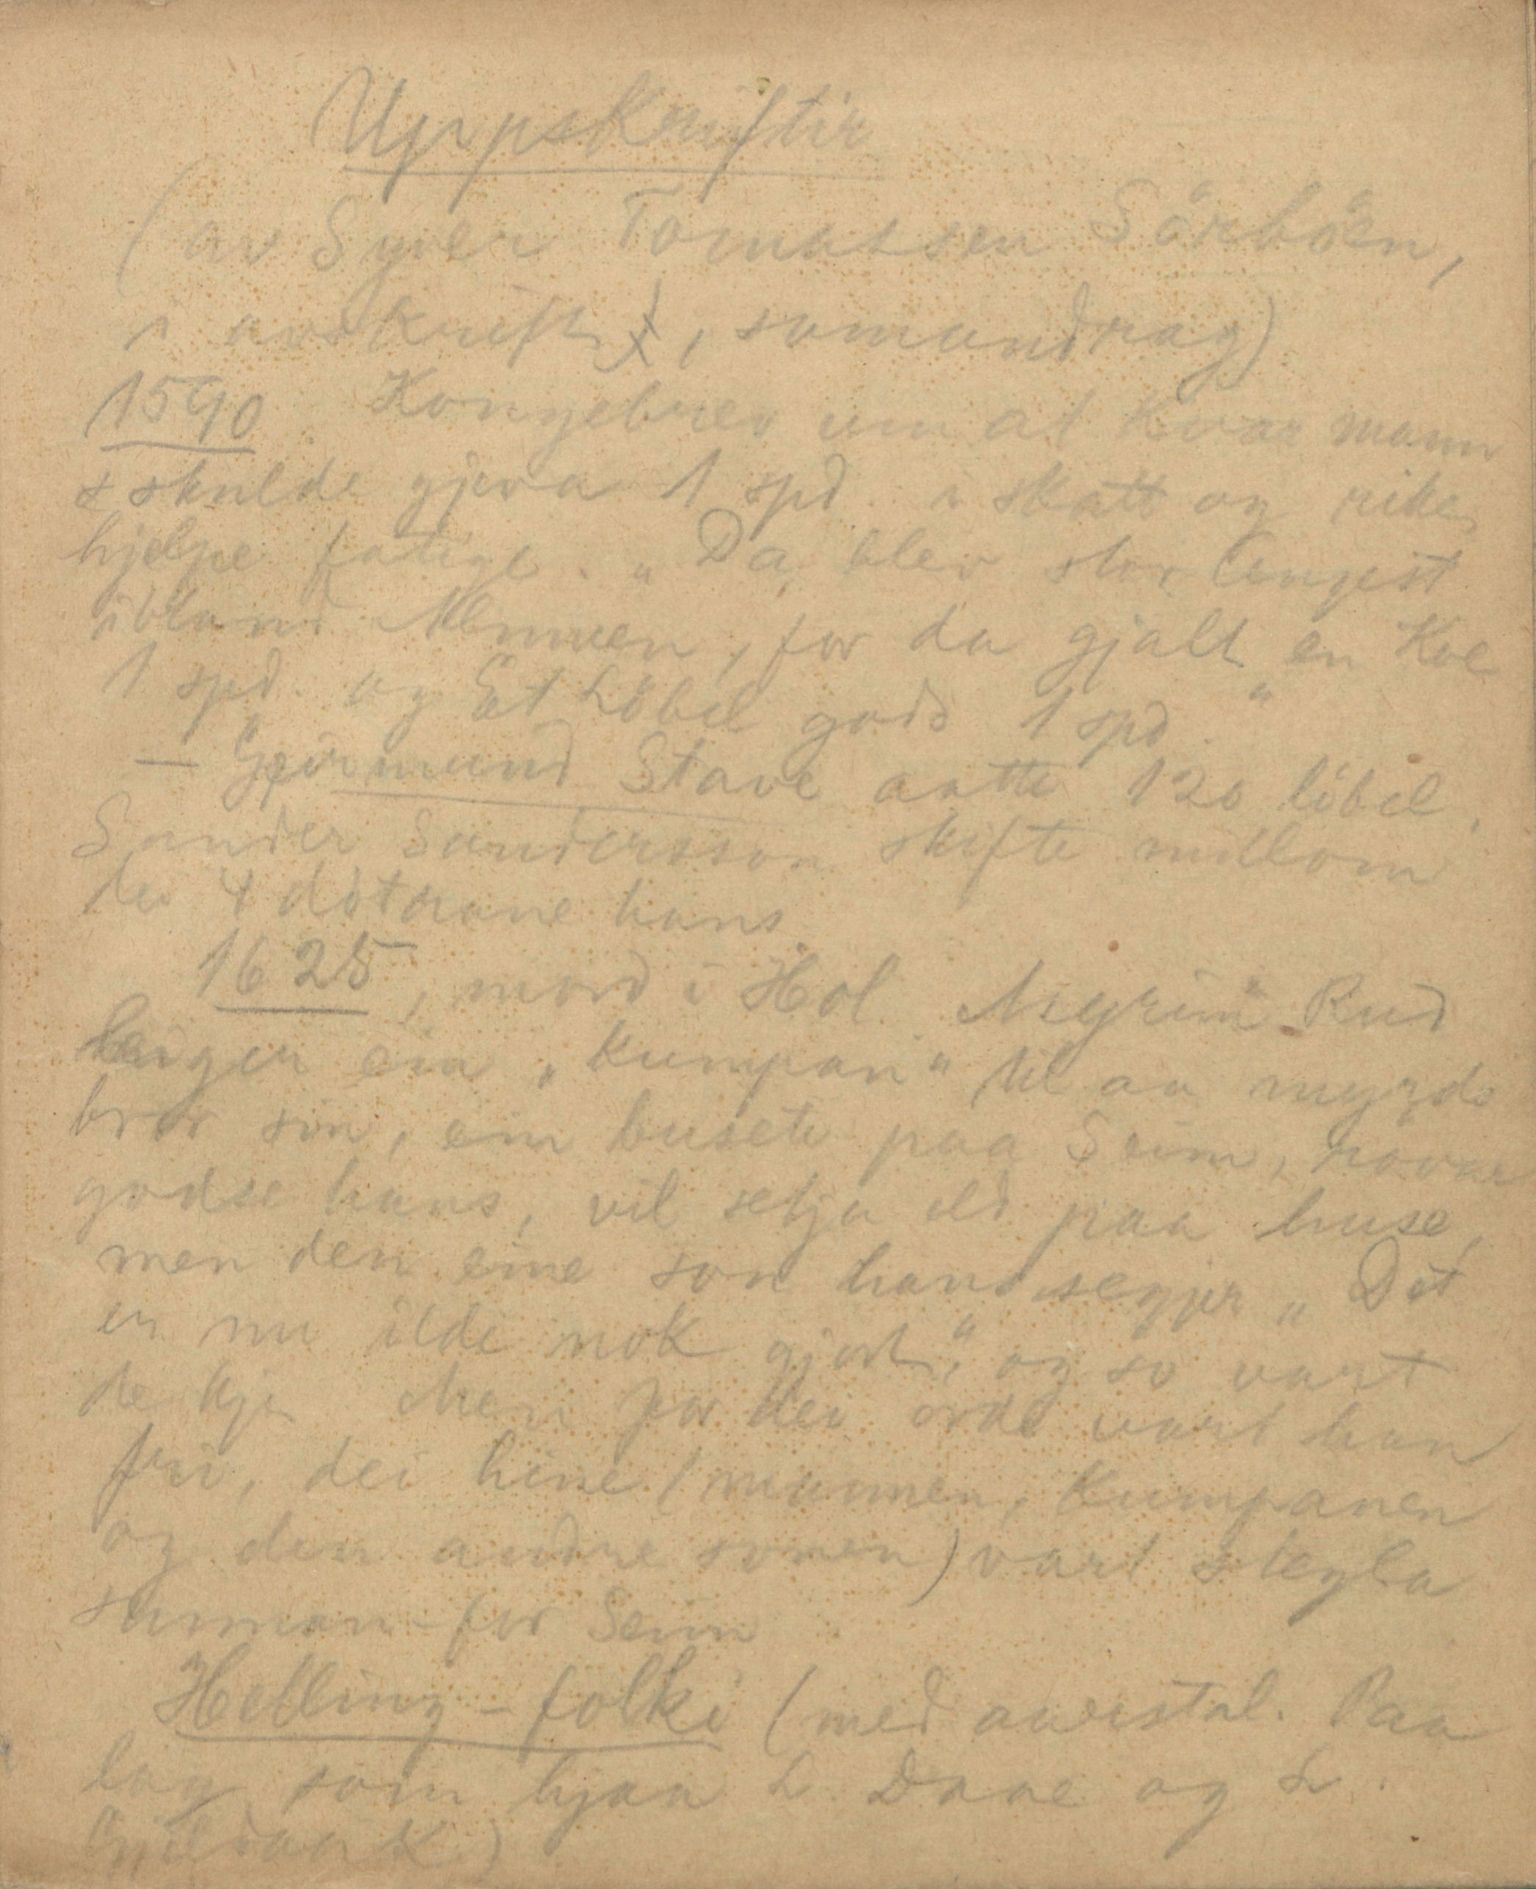 Uppskriftir
(av Syver Tomassen Sörböen,
i avskrift, samandrag)
1590 Kongebrev um at kvar mann
skulde gjeva 1 spd. i skatt og rike
hjelpe fatige. „Da blev stor Angist
ibland Almuen, for da gjalt en Koe
1 spd. og Et Löbel gods 1 spd."
— Geirmund Stave aatte 120 löbel.
Sander Sandersson skifte millom
dei 4 döttrane hans
1625, mord i Hol. Asgrim Rud
leiger ein „kumpan" til aa myrde
bror sin, ein busete paa Seim, rövar
godse hans, vil setja eld paa huse,
men den eine son hans segjer „Det
er nu ilde nok gjort," og so vart
de kje. Men for dei orde vart han
fri, dei hine (mannen, kumpanen
og den andre sonen) vart stegla
saman for Seim
Helling-folki (med aarstal. Paa
lag som hjaa L Daae og L.
Gjeldaak)